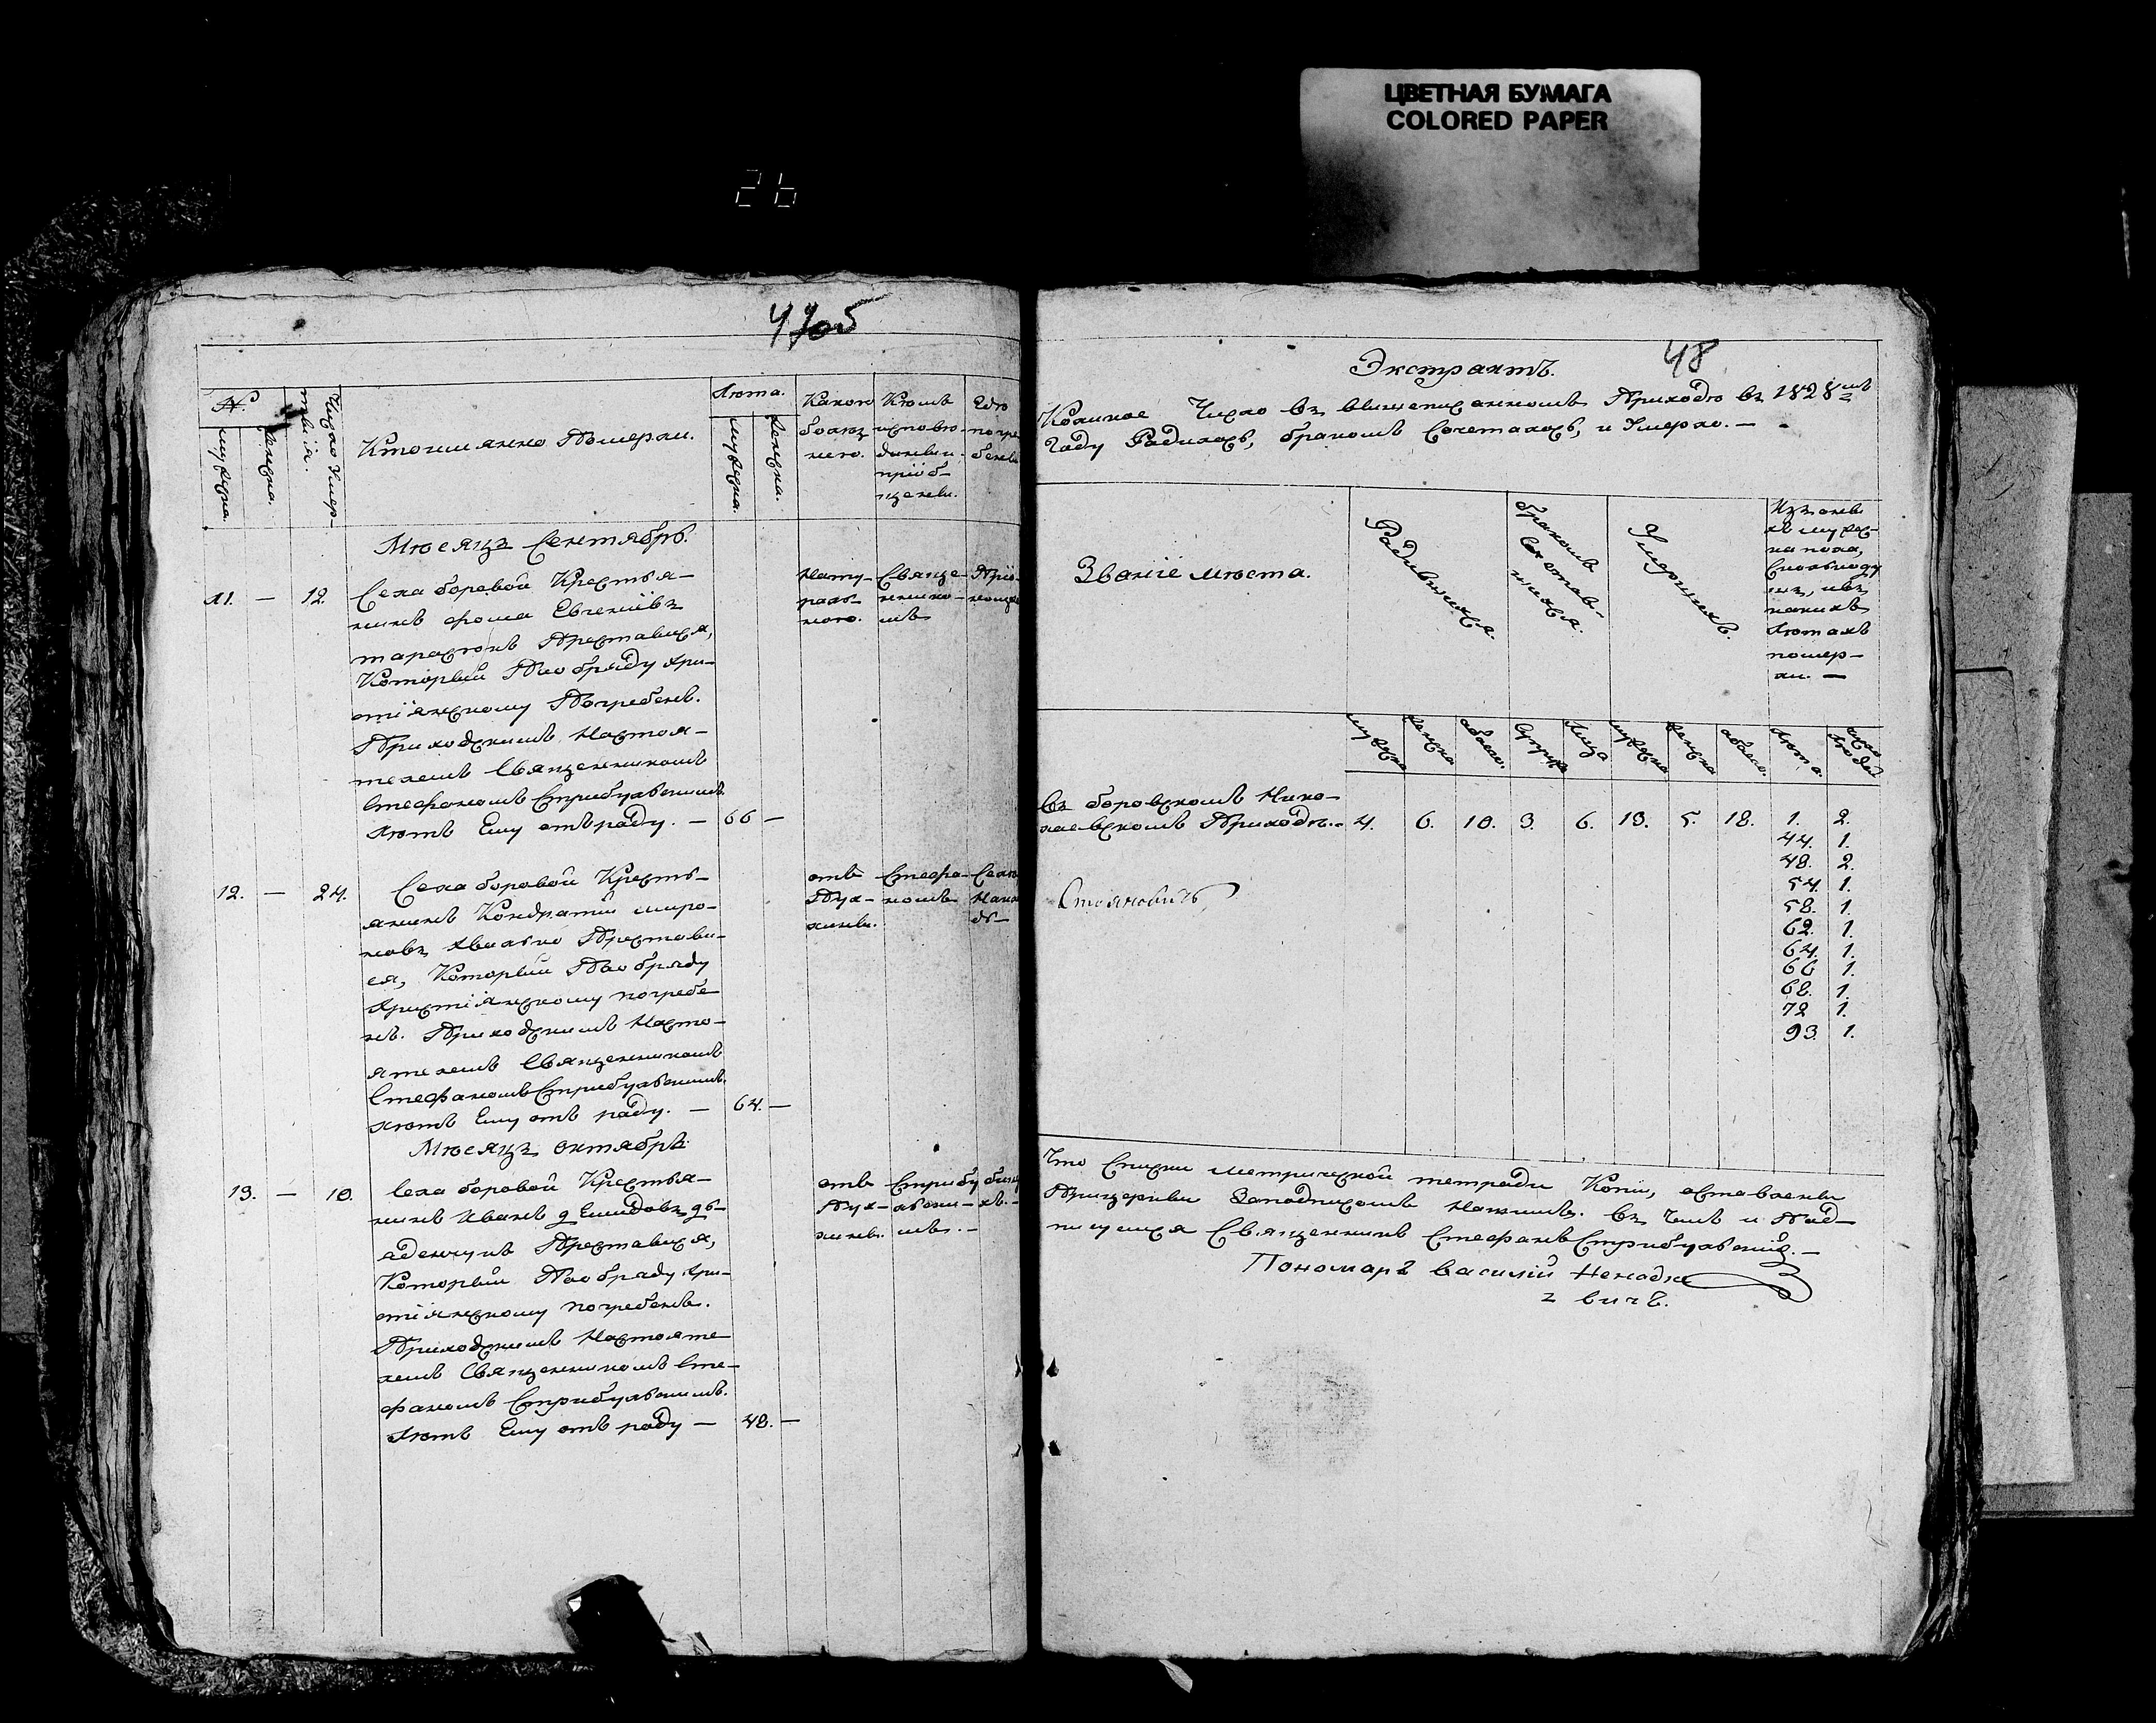 ЦВЕТНАЯ БУМАГА
COLORED PAPER
26
№.
мужеска.
женска.
Число Умер-
твія.
Кто именно Померли.
Лѣта.
мужеска.
женска.
Какою
болез
нею.
Кѣмъ
исповѣ-
дываны
пріоб-
щены.
Где
погре
бены
Мѣсяцъ Сентябрь.
11. — 12. Села боровой Крестья-
нинъ фома Евгеніевъ
тарасюкъ Преставися,
Который По обряду Хри-
стіянскому Погребенъ.
Приходскимъ Настоя-
телемъ Священникомъ
Стефаномъ Стрибульскимъ.
Лѣтъ Ему отъ роду. — 66 —
Нату-
раль-
ною.
Свяще-
ннико-
мъ
12. — 24. Села боровой Кресть-
янинъ Кондратій миро-
новъ Преставися,
Который По обряду
Христіянскому погребе
нъ. Приходскимъ Насто-
ятелемъ Священникомъ
Стефаномъ Стрибульскимъ.
Лѣтъ Ему отъ роду. — 64. —
отъ
Пух-
лины.
Стефа-
номъ
Мѣсяцъ октябрь
13. — 10. Села боровой Крестья-
нинъ Иванъ
Преставися,
Который По обряду Хри-
стіянскому погребенъ.
Приходскимъ Настояте
лемъ Священникомъ Сте-
фаномъ Стрибульскимъ.
Лѣтъ Ему отъ роду — 48. —
отъ
Пух-
лины.
Стрибу
льски-
мъ. —
48
Экстрактъ.
Коликое Число въ вышеписанномъ Приходѣ въ 1828мъ
Году Родилось, бракомъ Сочеталось, и Умерло. —
Званіе мѣста.
Родившихся.
бракомъ
Сочетав-
шихся.
Умершихъ.
мужеска
женска
обоего.
Супруж
Лица
мужеска
женска
обоего.
Лѣта.
число
людей
въ боровскомъ Нико-
лаевскомъ Приходѣ. — 4. 6. 10. 3. 6. 13. 5. 18. 1. 2.
44. 1.
48. 2.
54. 1.
58. 1.
62. 1.
64. 1.
66 1.
68. 1.
72 1.
93. 1.
Стояновичъ
Что Списки метрической тетради Копіи, оставлены
Прицеркви Заподписомъ Нашимъ. въ Чемъ и Под-
писуемся Священникъ Стефанъ Стрибульскій. —
Пономарь василій
вичъ.